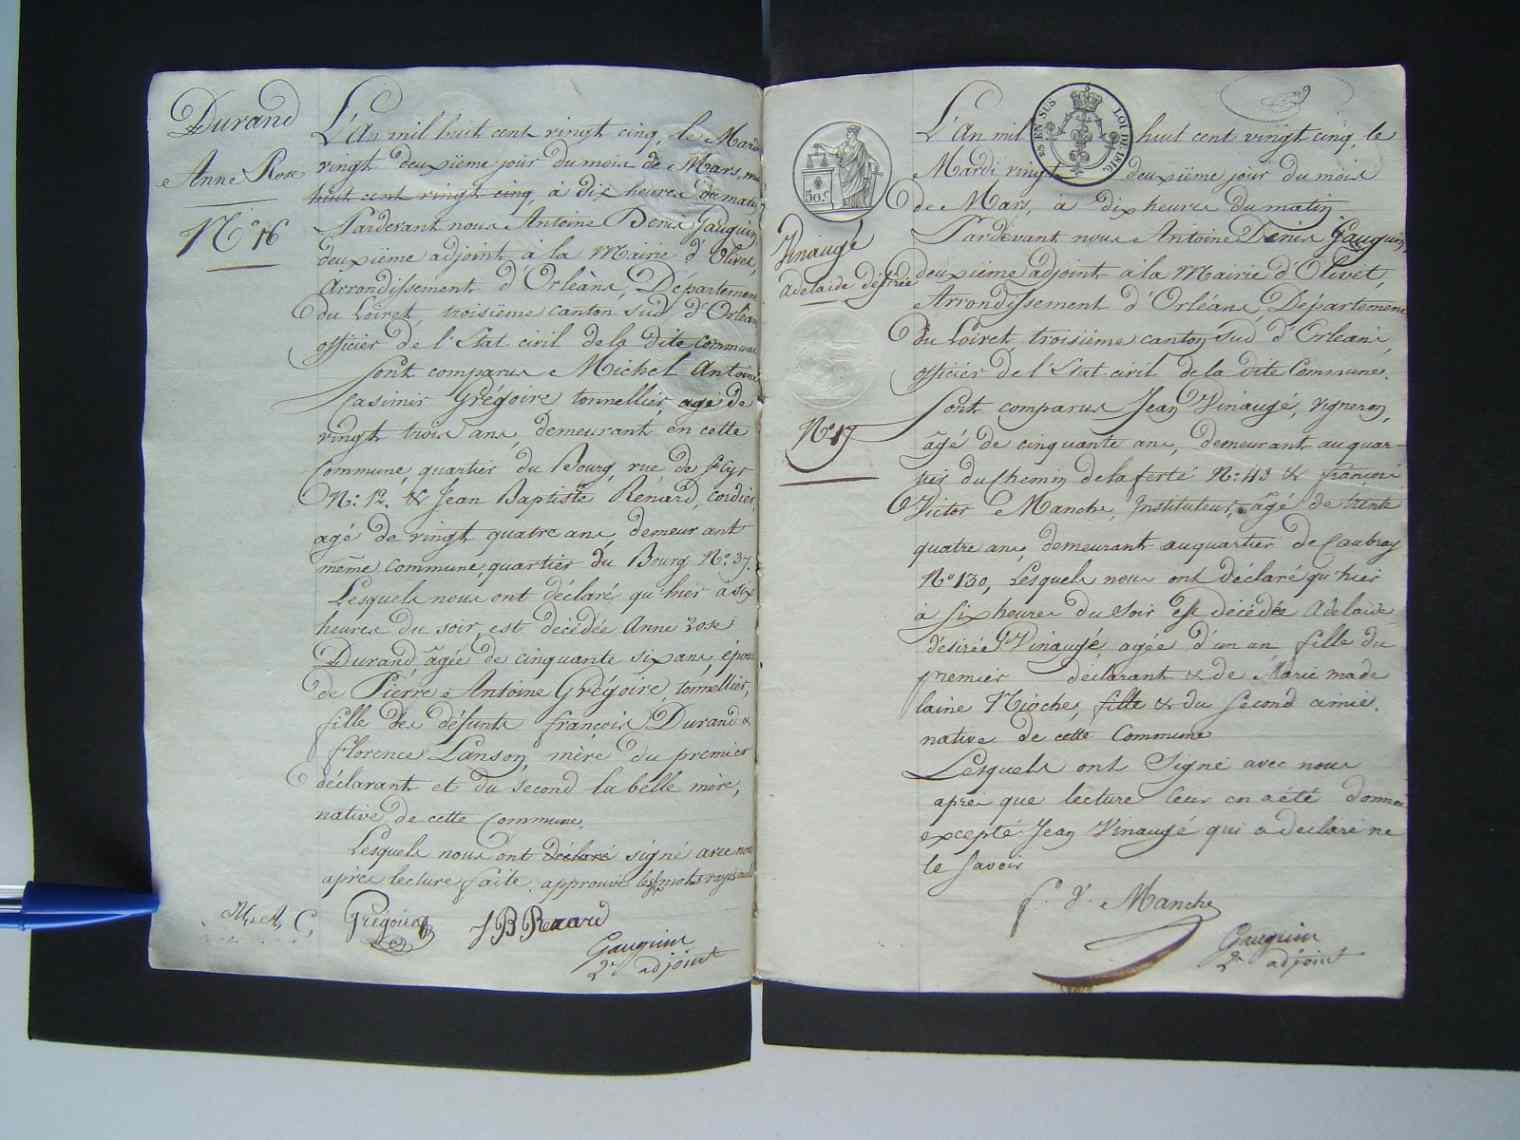 Durand
Anne Rose
N.° 16
L'An mil huit cent vingt cinq, le Mardi
vingt deuxième jour du mois de Mars, mil
huit cent vingt cinq, à dix heures du matin,
Pardevant nous Antoine Denis Gauguin,
deuxième adjoint à la Mairie d'Olivet,
Arrondissement d'Orléans, Département
du Loiret, troisième canton sud d'Orléans
officier de l'Etat civil de la dite Commune
Sont comparus Michel Antoine
Casimir Grégoire tonnellier, agé de
vingt trois ans, demeurant en cette
Commune, quartier du Bourg, rue de St Cyr
N.° 12. & Jean Baptiste Rénard, cordier,
agé de vingt quatre ans, demeurant
même Commune, quartier du Bourg N.° 37.
Lesquels nous ont déclaré qu'hier à six
heures du soir, est décédée Anne rose
Durand âgée de cinquante six ans, épouse
de Pierre Antoine Grégoire, tonnellier,
fille de défunts françois Durand &
florence Lanson, mère du premier
déclarant et du second la belle mère,
native de cette Commune.
Lesquels nous ont déclaré signé avec nous
après lecture faite. approuvé les mots rayés nuls
M. A. C. Grégoire J B Renard
Gauguin
2e adjoint
ES EN SUS LOI DE
50c
Vinaugé
adelaide désirée
N.° 17
L'An mil huit cent vingt cinq, le
Mardi vingt deuxième jour du mois
de Mars, à dix heures du matin
Pardevant nous Antoine Denis Gauguin,
deuxième adjoint à la Mairie d'Olivet,
Arrondissement d'Orléans, Département
du Loiret, troisième canton sud d'Orléans,
officier de l'Etat civil de la dite Commune.
Sont comparus Jean Vinaugé, vigneron,
âgé de cinquante ans, demeurant au quar-
tier du chemin de la ferté N.° 43 & françois
Victor Manche, Instituteur, âgé de trente
quatre ans, demeurant au quartier de Caubray
N.° 130, Lesquels nous ont déclaré qu'hier
à six heures du soir est décédée Adelaide
désirée Vinaugé, agée d'un an fille du
premier déclarant & de Marie made
laine Rioche, fille & du second amie.
native de cette Commune
Lesquels ont Signé avec nous
apres que lecture leur en a été donnée
excepté Jean Vinaugé qui a déclaré ne
le savoir
f. V. Manche
Gauguin
2e adjoint